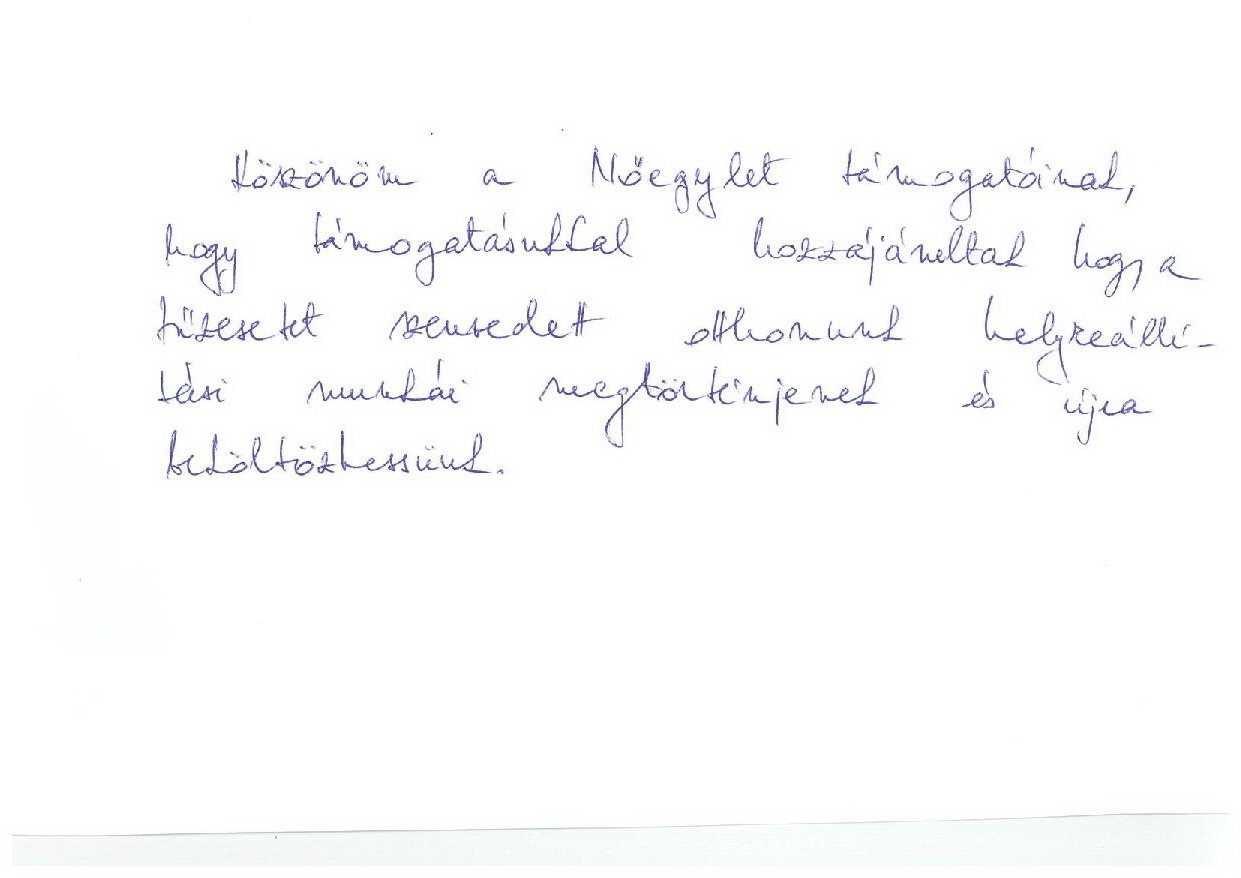 Köszönöm a Nőegylet támogatóinak,
hogy támogatásukkal hozzájárultak hogy a
tűzesetet szenvedett otthonunk helyreállí-
tási munkái megtörténjenek és újra
beköltözhessünk.